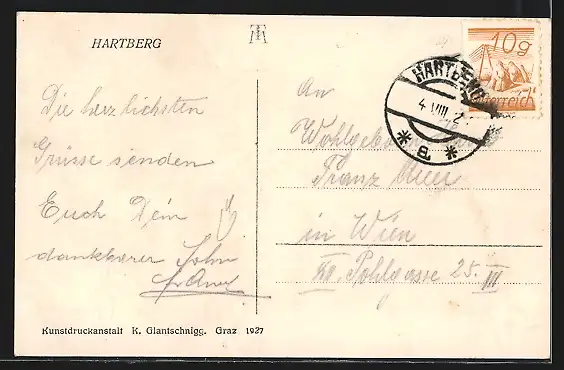 HARTBERG
Die herzlichsten
Grüsse senden
Euch Dein
dankbarer Sohn
10g
Österreich
HARTBERG
4.VIII.2
* a *
An
Wohlgeboren
Franz Auer
in Wien
Pohlgasse 25. III
Kunstdruckanstalt K. Glantschnigg. Graz 1927